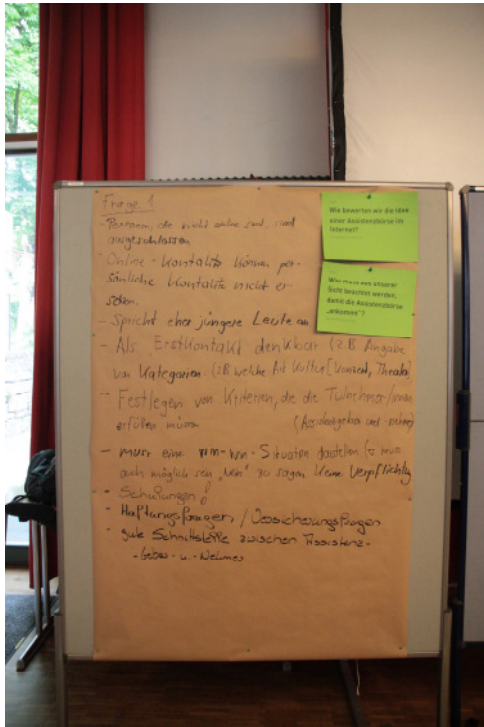 Frage 1
- Personen, die nicht online sind, sind
ausgeschlossen
- Online-Kontakte können per-
sönliche Kontakte nicht er-
setzen.
- Spricht eher jüngere Leute an
- Als Erstkontakt denkbar (z.B. Angabe
von Kategorien. (z.B. welche Art Kultur [Konzert, Theater]
- Festlegen von Kriterien, die die Teilnehmer/innen
erfüllen müssen
(Assistenzgeber und -nehmer)
- muss eine win-win-Situation darstellen (es muss
auch möglich sein, „Nein" zu sagen keine Verpflichtg
- Schulungen!
- Haftungsfragen / Versicherungsfragen
- gute Schnittstelle zwischen Assistenz-
-Geber- u. -Nehmer
Wie bewerten wir die Idee
einer Assistenzbörse im
Internet?
Was muss aus unserer
Sicht beachtet werden,
damit die Assistenzbörse
„ankommt"?